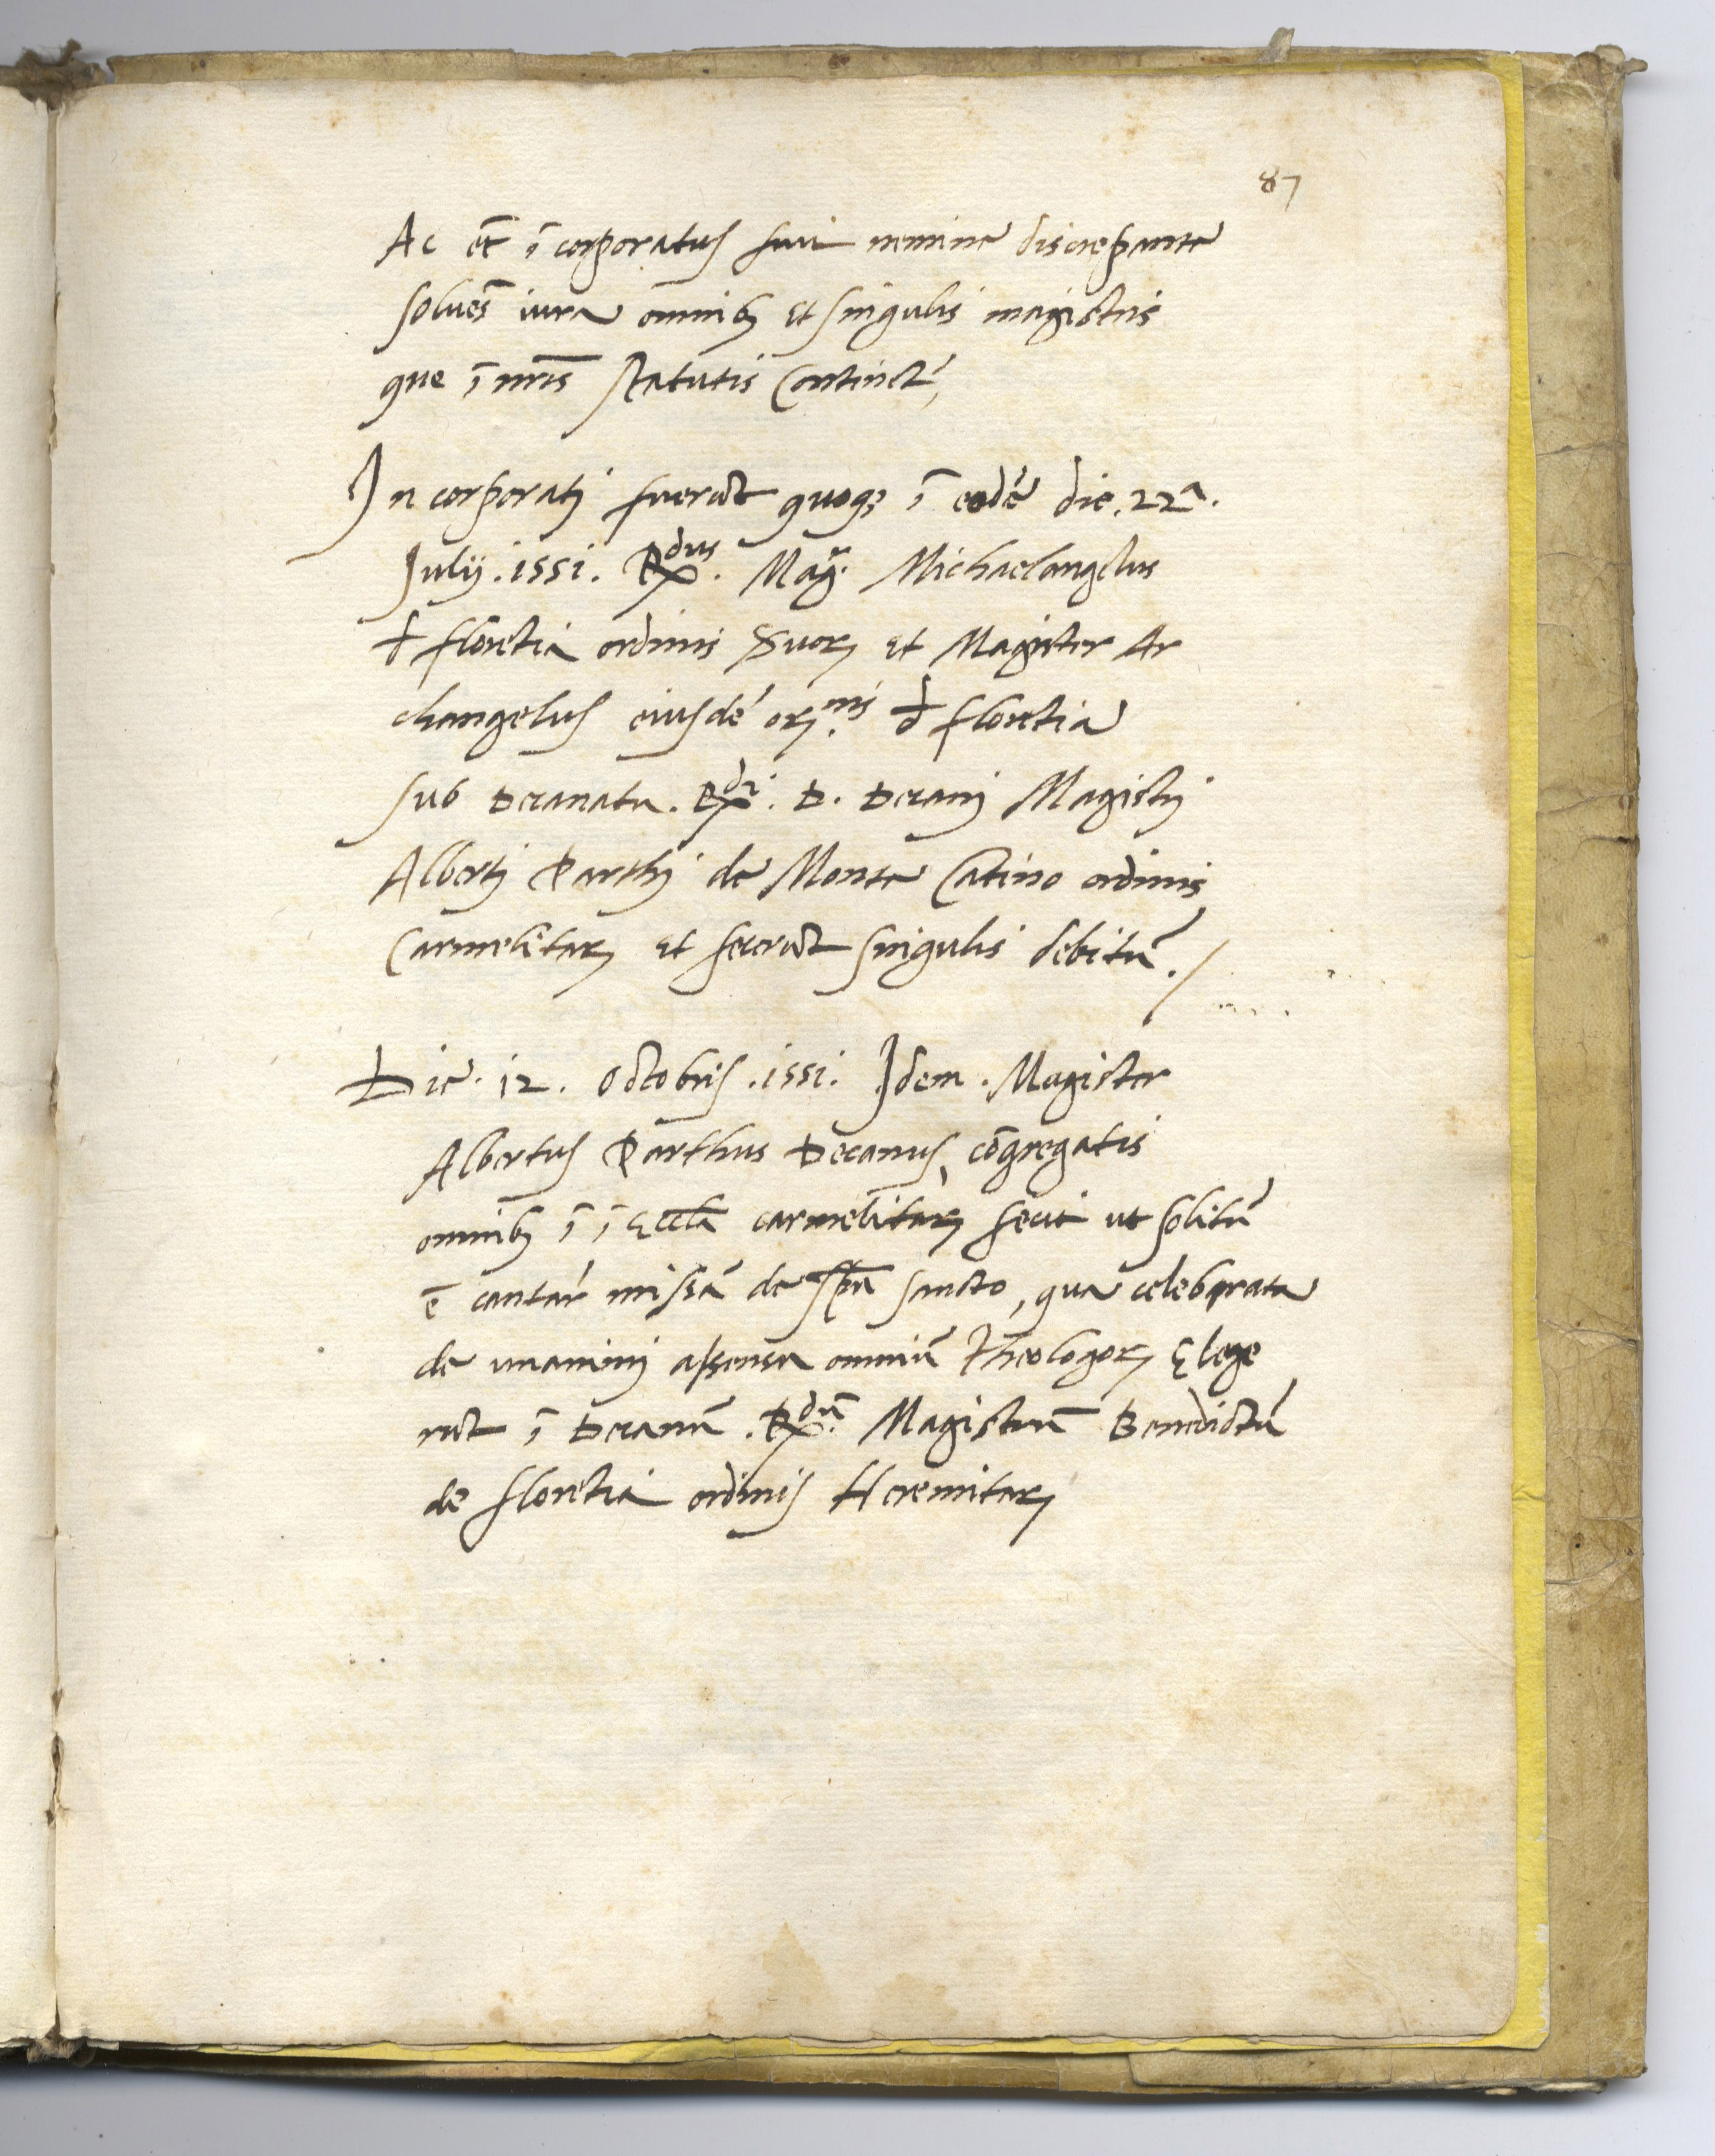 87
Ac et̄ ī corporatus fuit nemine discrepante
soluēs iura omnibꝫ et singulis magistris
que ī nr̄is statutis Continēt,
In corporatj fuerūt quoqꝫ ī eodē die .22ᵃ.
Julij .1551. Rᵈᵘˢ. Magʳ. Michaelangelus
đ florētia ordinis Suoꝝ et Magister Ar
changelus eiusdē orꝫ.ⁿⁱˢ đ florētia
sub Decanatu. Rᵈⁱ. D. Decanj Magistrj
Albertj Parthj de Monte Catino ordinis
Carmelitaꝝ et fecerūt singulis debitū./
Die .12. Octobris .1551. Idem .Magister
Albertus Parthus Decanus, cōgregatis
omnibꝫ ī ī Eccl̄a carmelitaꝝ fecit ut solitū
ē cantar̄ missā de sp̄u sancto, qua celebrata
de unanimj assensu omniū Theologoꝝ Elege
rūt ī Decanū .Rᵈū. Magistrum̄ Benedictū
de florētia ordinis Heremitaꝝ